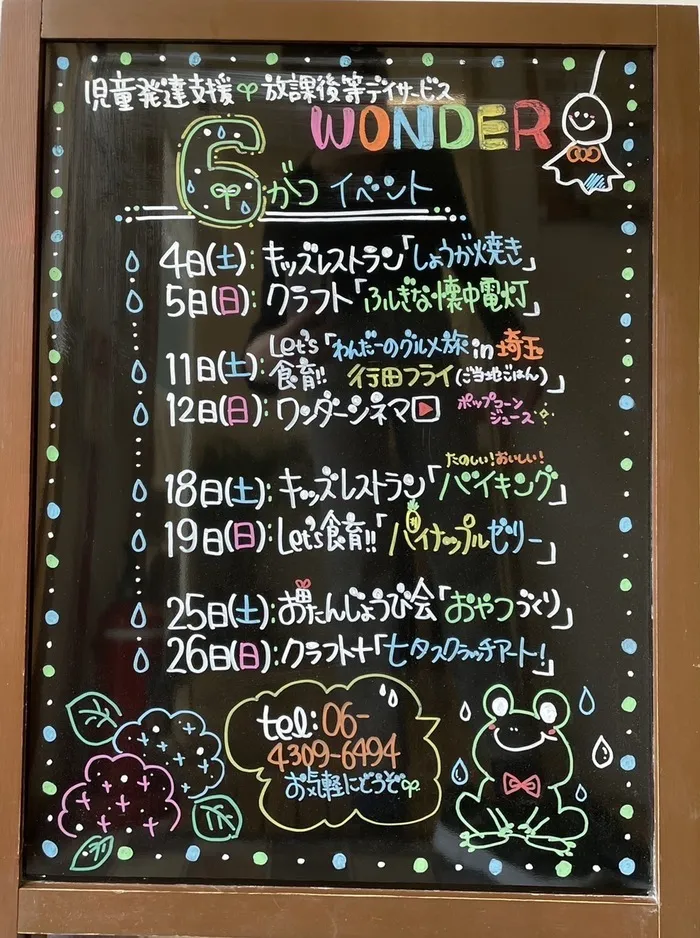 児童発達支援 放課後等デイサービス
WONDER
6がつ イベント
4日(土):キッズレストラン「しょうが焼き」
5日(日):クラフト「ふしぎな懐中電灯」
11日(土):Let's食育!!「わんだーのグルメ旅in埼玉
行田フライ(ご当地ごはん)」
12日(日):ワンダーシネマ ポップコーン
ジュース
たのしい!おいしい!
18日(土):キッズレストラン「バイキング」
19日(日):Let's食育!!「パイナップルゼリー」
25日(土):おたんじょうび会「おやつづくり」
26日(日):クラフト+「七夕スクラッチアート!」
tel:06-
4309-6494
お気軽にどうぞ